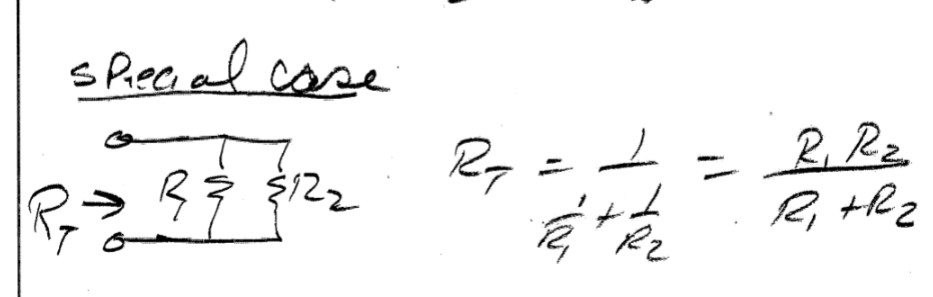 special case
R_T → R_1 R_2
R_T = 1 / (1/R_1 + 1/R_2) = R_1 R_2 / (R_1 + R_2)